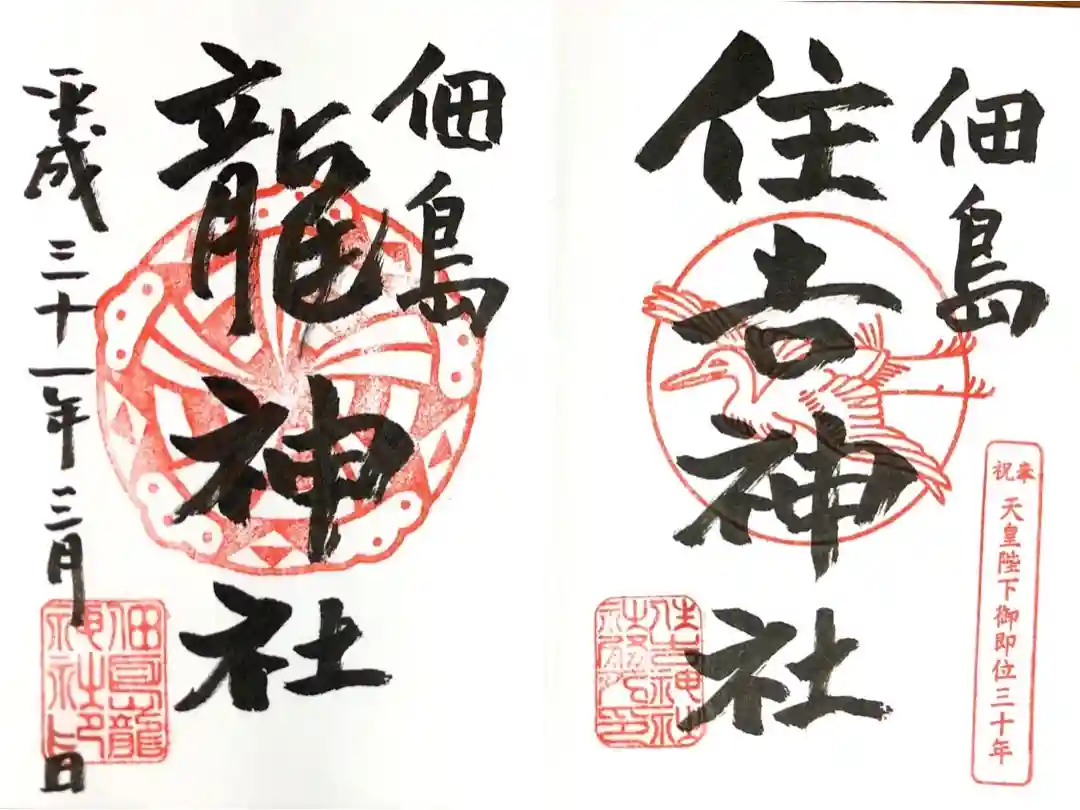 奉祝
天皇陛下御即位三十年
佃島
住吉神社
住吉神社
社務所印
佃島
龍神社
平成三十一年三月日
佃島龍
神社印